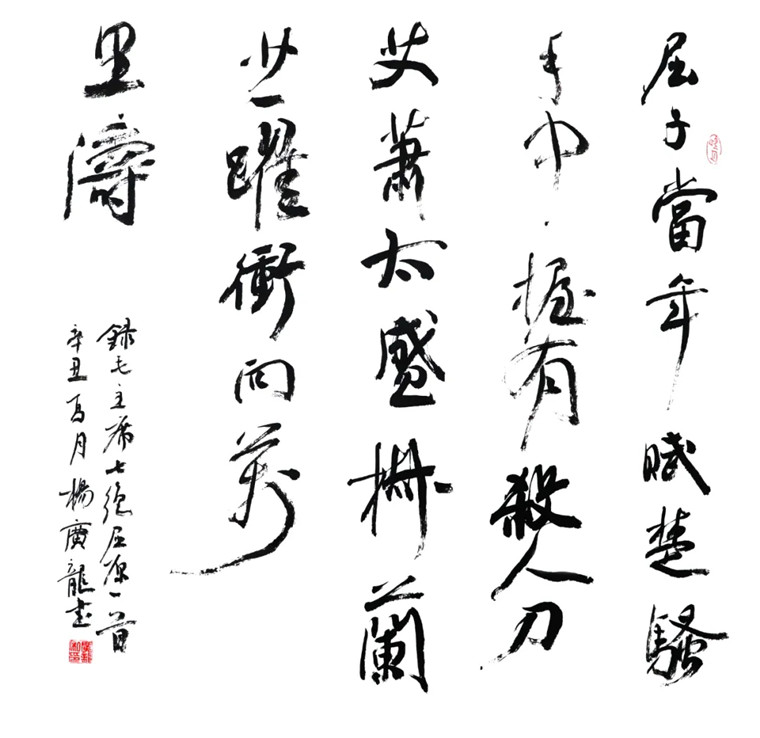 屈子當年賦楚騷
手中握有殺人刀
艾蕭太盛椒蘭
少一躍衝向萬
里濤
録毛主席七絶屈原一首
辛丑夏月楊廣龍書